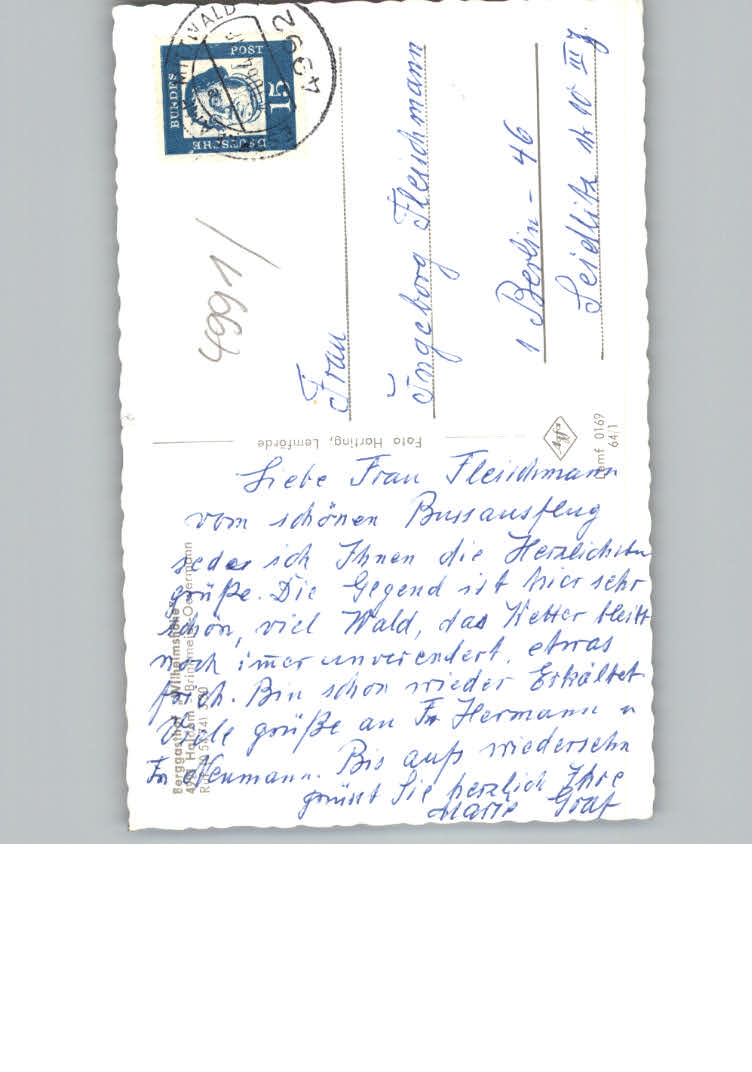 DEUTSCHE
BUNDES
POST
15
4991/
Frau
Ingeborg Fleischmann
1 Berlin - 46
Seidlitz str 10 III
Foto Harting, Lemförde
Agfa
Lemf 0169
64/1
Berggasthof „Wilhelmshöhe"
Liebe Frau Fleischmann
vom schönen Bussausflug
sede ich Ihnen die Herzlichsten
grüße. Die Gegend ist hier sehr
schön, viel Wald, das Wetter bleitt
noch imer unverendert, etwas
frich. Bin schon wieder Erkältet
Viele grüße an Fr Hermann u
Fr Neumann. Bis aufs wiedersehn
grüsst Sie herzlich Ihre
Marie Graf